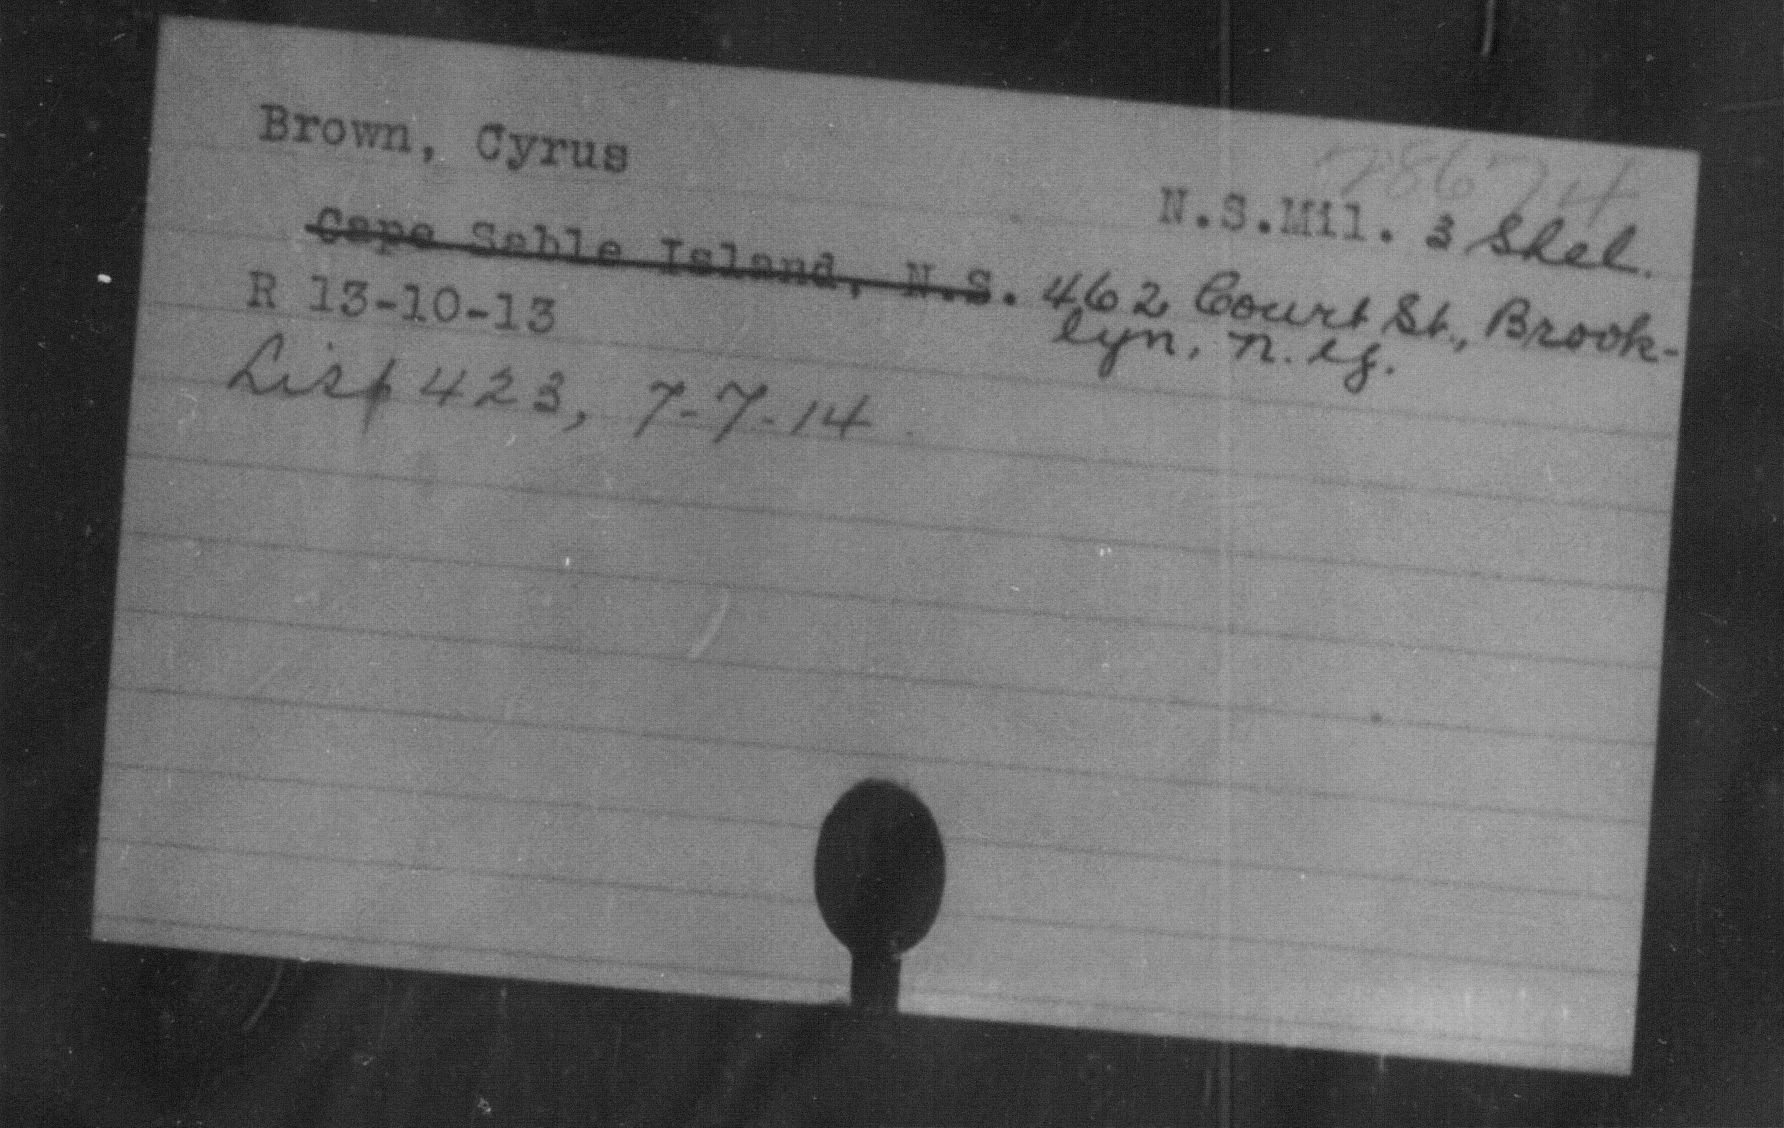 Brown, Cyrus
28674
N.S.Mil. 3 Shel.
Cape Sable Island, N.S. 462 Court St., Brook-
lyn, N.Y.
R 13-10-13
Disp 423, 7-7-14